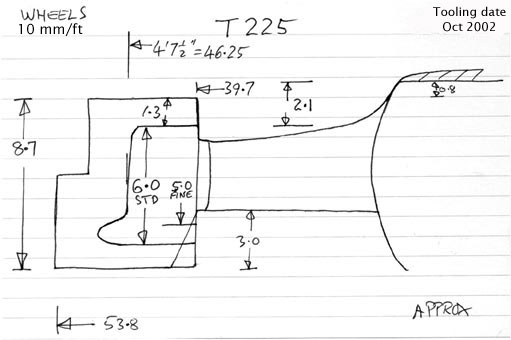 WHEELS
10 mm/ft
T 225
Tooling date
Oct 2002
4'7½"=46.25
39.7
2.1
0.8
1.3
8.7
6.0
STD
5.0
FINE
3.0
53.8
APPROX